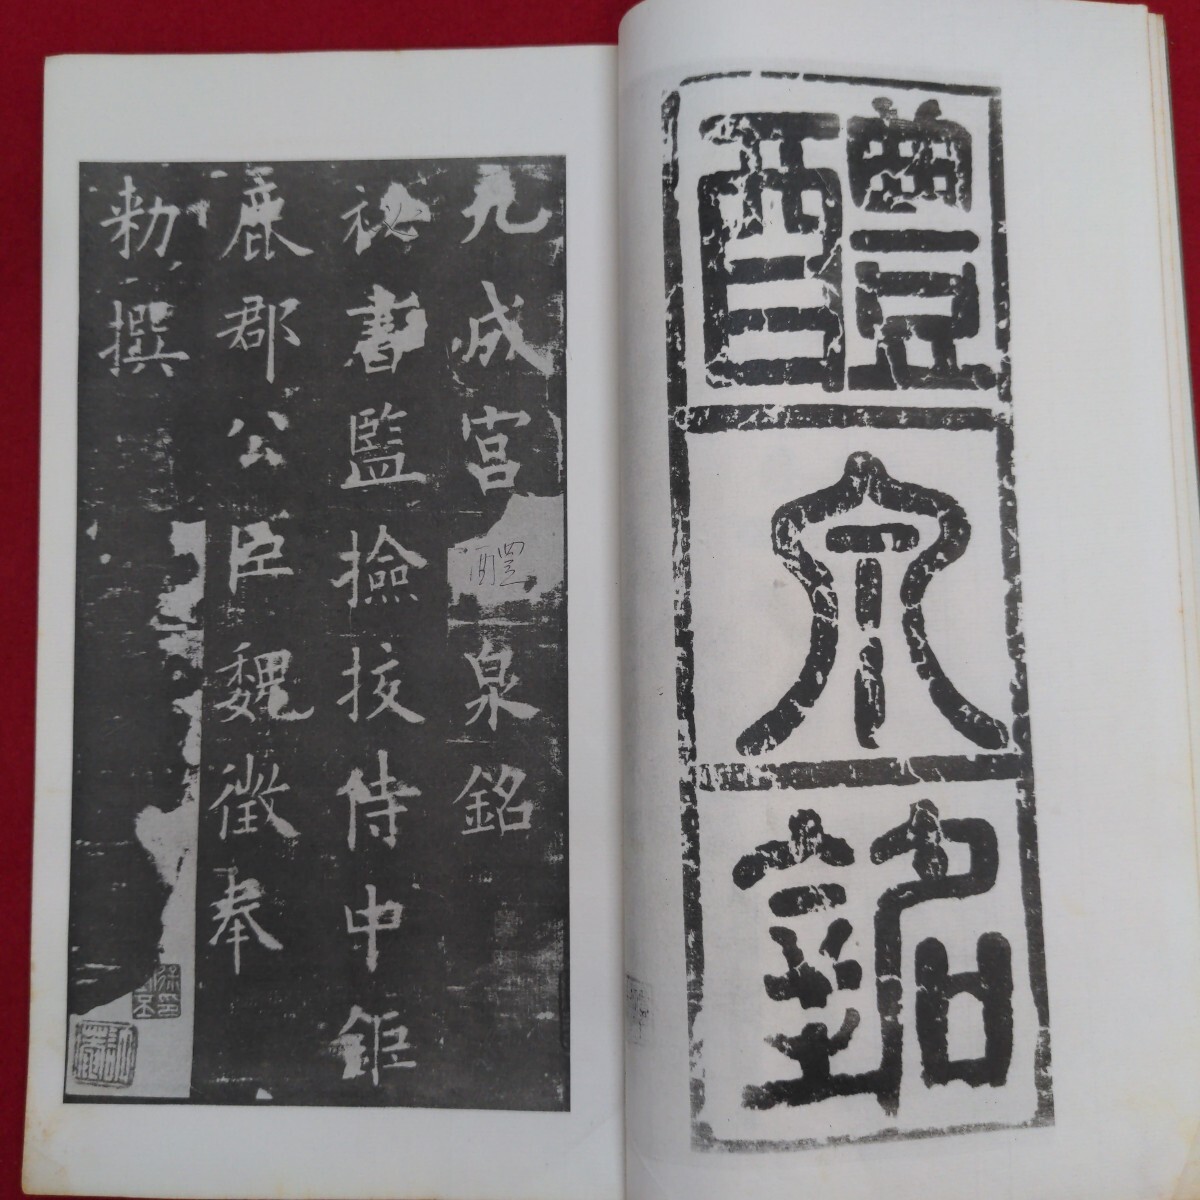 醴
泉
銘
九成宮醴泉銘
祕書監撿挍侍中鉅
鹿郡公臣魏徵奉
勑撰